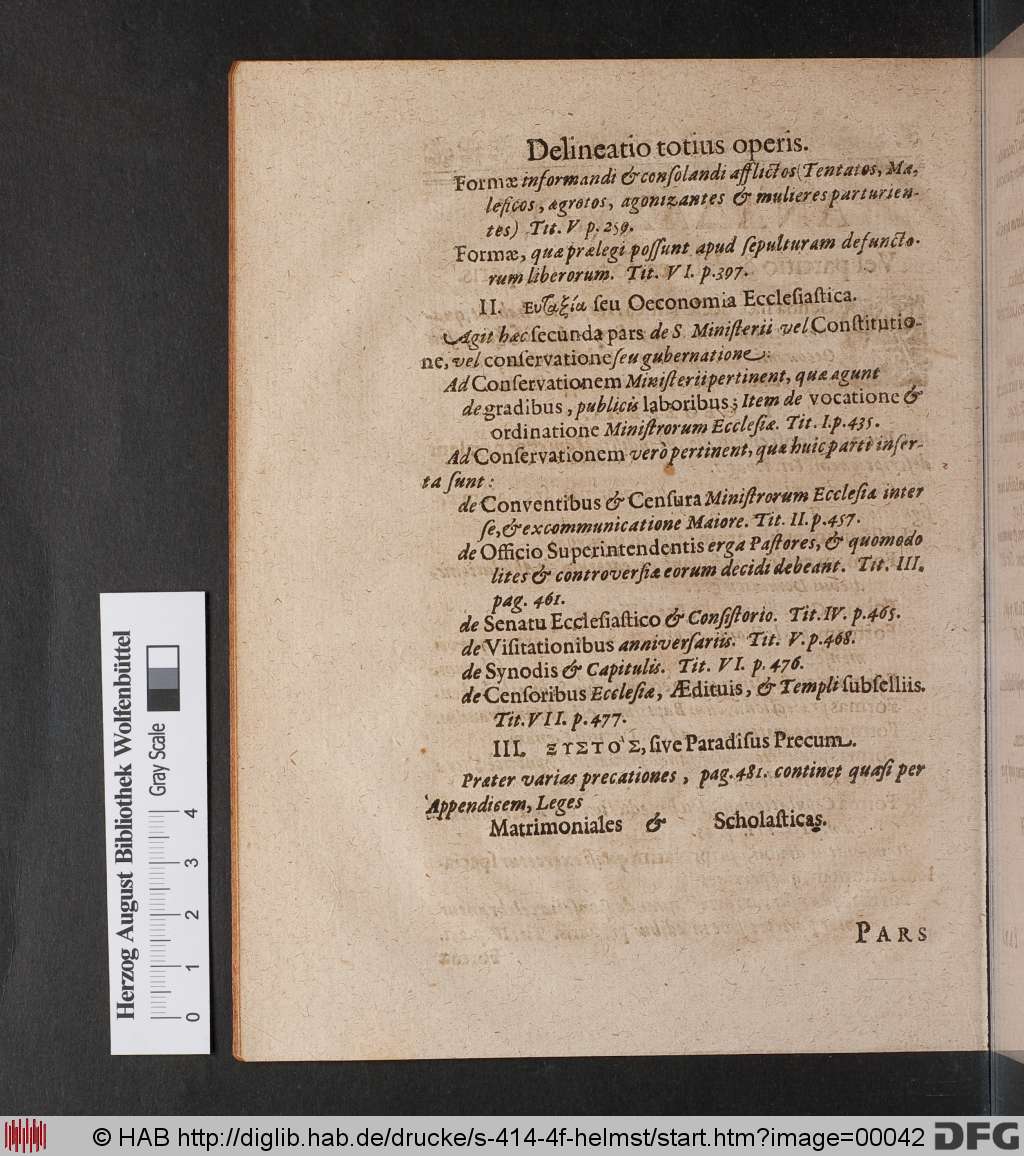 Delineatio totius operis.
Formæ informandi & conſolandi afflictos (Tentatos, Ma-
leficos, ægrotos, agonizantes & mulieres parturien-
tes) Tit. V p. 259.
Formæ, quæ prælegi poſſunt apud ſepulturam defuncto-
rum liberorum. Tit. VI. p. 397.
II. Ευταξία ſeu Oeconomia Eccleſiaſtica.
Agit hæc ſecunda pars de S. Miniſterii vel Conſtitutio-
ne, vel conſervatione ſeu gubernatione:
Ad Conſervationem Miniſterii pertinent, quæ agunt
de gradibus, publicis laboribus; Item de vocatione &
ordinatione Miniſtrorum Eccleſiæ. Tit. I. p. 435.
Ad Conſervationem verò pertinent, quæ huic parti inſer-
ta ſunt:
de Conventibus & Cenſura Miniſtrorum Eccleſiæ inter
ſe, & excommunicatione Maiore. Tit. II. p. 457.
de Officio Superintendentis erga Paſtores, & quomodo
lites & controverſiæ eorum decidi debeant. Tit. III.
pag. 461.
de Senatu Eccleſiaſtico & Conſiſtorio. Tit. IV. p. 465.
de Viſitationibus anniverſariis. Tit. V. p. 468.
de Synodis & Capitulis. Tit. VI. p. 476.
de Cenſoribus Eccleſiæ, Ædituis, & Templi ſubſelliis.
Tit. VII. p. 477.
III. ΞΥΣΤΟ'Σ, ſive Paradiſus Precum.
Præter varias precationes, pag. 481. continet quaſi per
Appendicem, Leges
Matrimoniales & Scholaſticas.
PARS
Herzog August Bibliothek Wolfenbüttel
Gray Scale
0 1 2 3 4
© HAB http://diglib.hab.de/drucke/s-414-4f-helmst/start.htm?image=00042
DFG